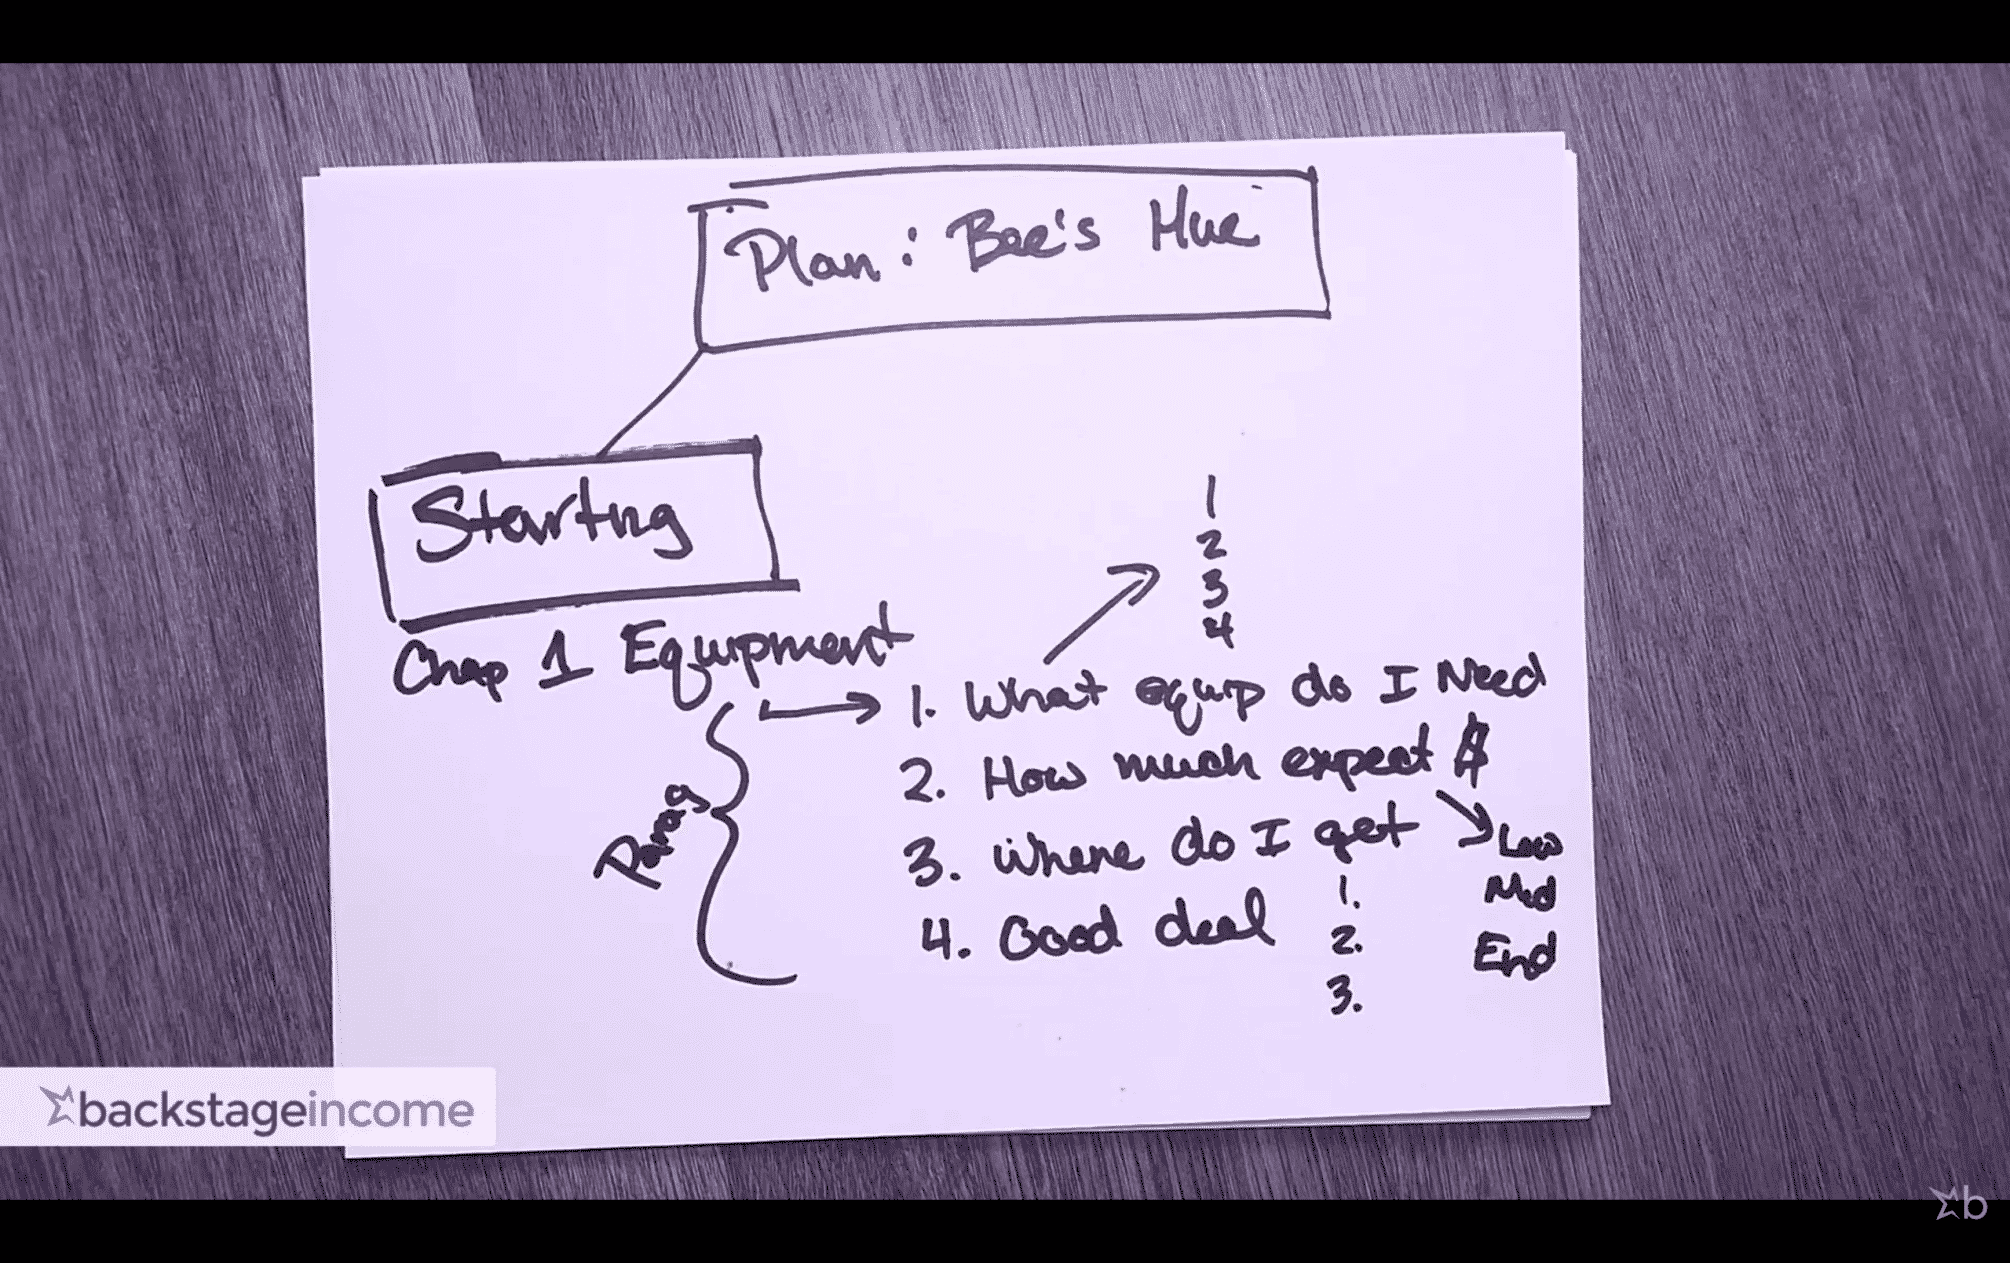 Plan: Bee's Hue
Starting
1
2
3
4
Chap 1 Equipment
1. What equip do I Need
2. How much expect $
Low
Med
End
3. Where do I get
1.
2.
3.
4. Good deal
Parag
backstageincome
b